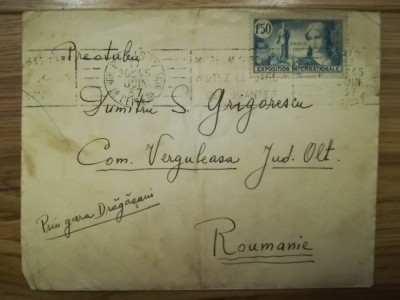 1F50
PARIS
EXPOSITION INTERNATIONALE
Preotului
Dumitru S. Grigorescu
Com. Verguleasa Jud. Olt.
Prin gara Drăgăşani
Roumanie